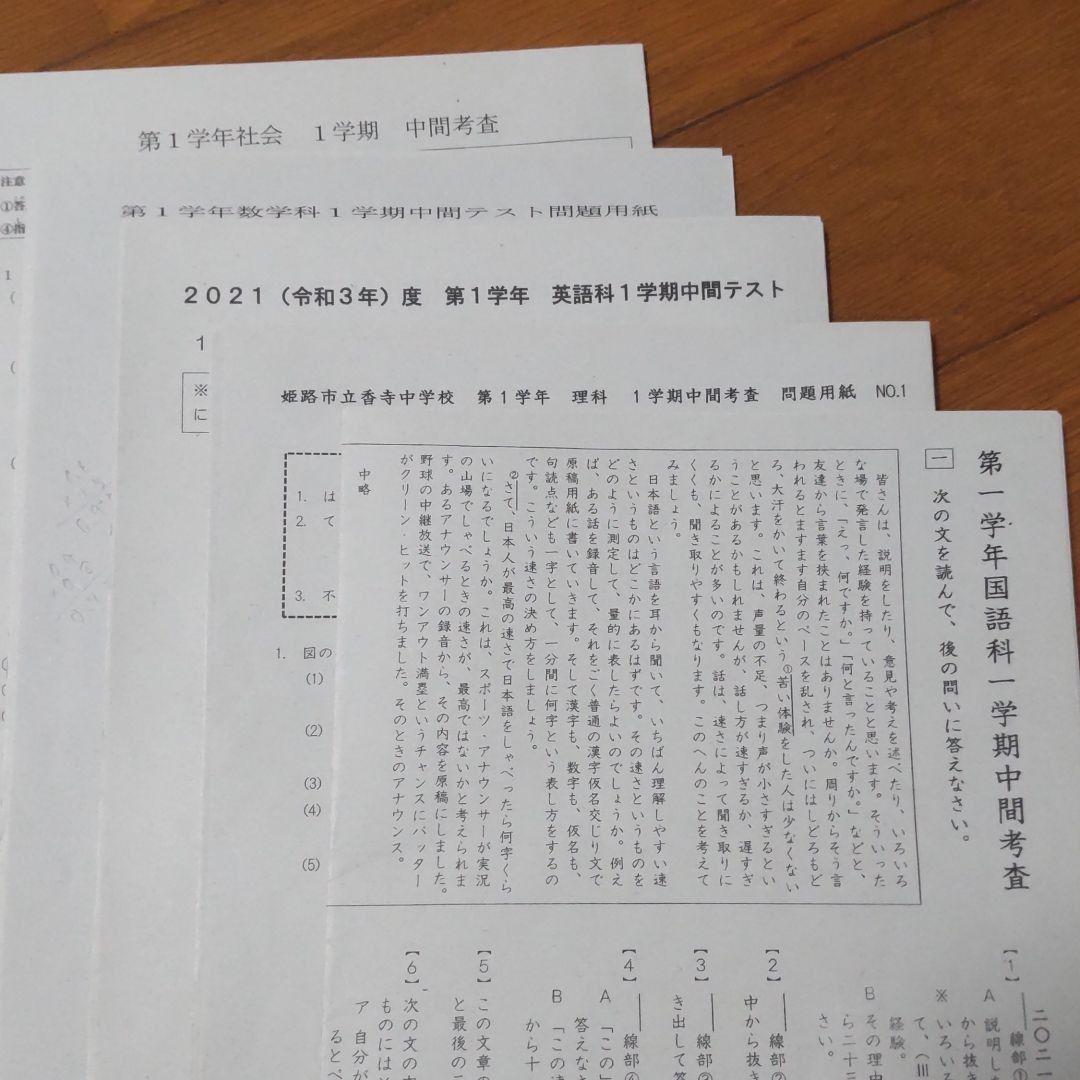 第１学年社会　１学期　中間考査
注意
①答
④指
1
(
(
(
第１学年数学科１学期中間テスト問題用紙
２０２１（令和３年）度　第１学年　英語科１学期中間テスト
1
※
に
姫路市立香寺中学校　第１学年　理科　１学期中間考査　問題用紙　NO.1
1. は
2. て
3. 不
1. 図の
(1)
(2)
(3)
(4)
(5)
第一学年国語科一学期中間考査
一　次の文を読んで、後の問いに答えなさい。
皆さんは、説明をしたり、意見や考えを述べたり、いろいろ
な場で発言した経験を持っていることと思います。そういった
ときに、「えっ、何ですか。」「何と言ったんですか。」などと、
友達から言葉を挟まれたことはありませんか。周りからそう言
われるとますます自分のペースを乱され、ついにはしどろもど
ろ、大汗をかいて終わるという①苦い体験をした人は少なくない
と思います。これは、声量の不足、つまり声が小さすぎるとい
うことがあるかもしれませんが、話し方が速すぎるか、遅すぎ
るかによることが多いのです。話は、速さによって聞き取りに
くくも、聞き取りやすくもなります。このへんのことを考えて
みましょう。
日本語という言語を耳から聞いて、いちばん理解しやすい速
さというものはどこかにあるはずです。その速さというものを
どのように測定して、量的に表したらよいのでしょうか。例え
ば、ある話を録音して、それをごく普通の漢字仮名交じり文で
原稿用紙に書いていきます。そして漢字も、数字も、仮名も、
句読点なども一字として、一分間に何字という表し方をするの
です。こういう速さの決め方をしましょう。
②さて、日本人が最高の速さで日本語をしゃべったら何字くら
いになるでしょうか。これは、スポーツ・アナウンサーが実況
の山場でしゃべるときの速さが、最高ではないかと考えられま
す。あるアナウンサーの録音から、その内容を原稿にしました。
野球の中継放送で、ワンアウト満塁というチャンスにバッター
がクリーン・ヒットを打ちました。そのときのアナウンス。
中略
二〇二1
【1】　線部①
A　説明し
から抜き
※　いろいろ
て、（Ⅲ
経験。
B　その理由
ら二十三
さい。
【2】　線部②
中から抜き
【3】　線部②
き出して答
【4】　線部④
A　「この」
答えな
B　「この速
から十
【5】この文章の
と最後の二
【6】次の文の内
ものには
ア　自分が
るとペ